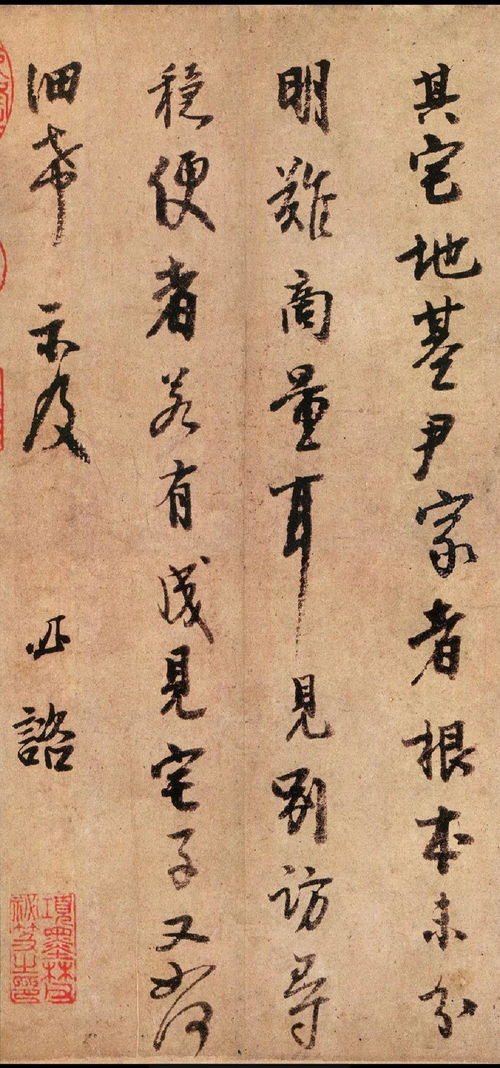 其宅地基尹家者根本未分
明難商量耳見別訪尋
穩便者若有成見宅子又如何
細希 示及 諮
項墨林父
秘笈之印